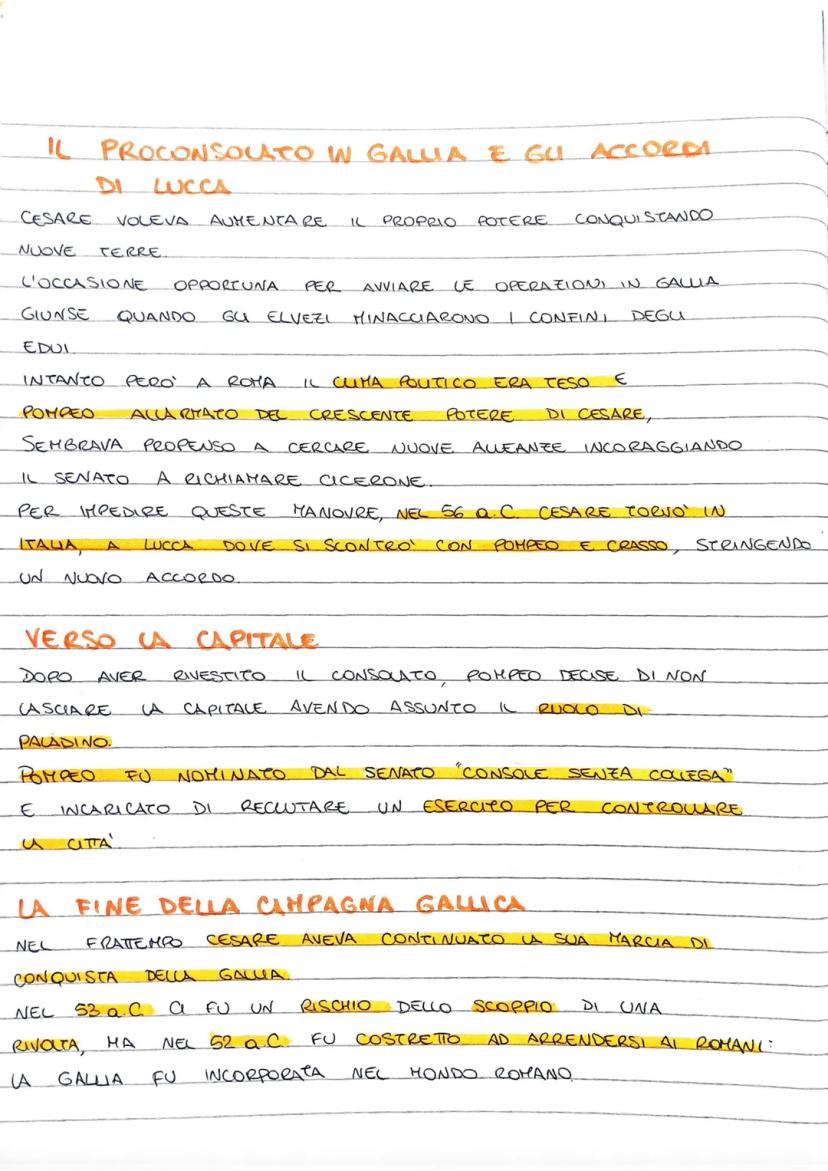 IL PROCONSOLATO IN GALLIA E GLI ACCORDI
DI LUCCA
CESARE VOLEVA AUMENTARE IL PROPRIO POTERE CONQUISTANDO
NUOVE TERRE.
L'OCCASIONE OPPORTUNA PER AVVIARE LE OPERAZIONI IN GALLIA
GIUNSE QUANDO GLI ELVEZI MINACCIARONO I CONFINI DEGLI
EDUI.
INTANTO PERO' A ROMA IL CLIMA POLITICO ERA TESO E
POMPEO ALLARMATO DEL CRESCENTE POTERE DI CESARE,
SEMBRAVA PROPENSO A CERCARE NUOVE ALLEANZE INCORAGGIANDO
IL SENATO A RICHIAMARE CICERONE.
PER IMPEDIRE QUESTE MANOVRE, NEL 56 a.C. CESARE TORNO' IN
ITALIA, A LUCCA DOVE SI SCONTRO' CON POMPEO E CRASSO, STRINGENDO
UN NUOVO ACCORDO.
VERSO LA CAPITALE
DOPO AVER RIVESTITO IL CONSOLATO, POMPEO DECISE DI NON
LASCIARE LA CAPITALE AVENDO ASSUNTO IL RUOLO DI
PALADINO.
POMPEO FU NOMINATO DAL SENATO "CONSOLE SENZA COLLEGA"
E INCARICATO DI RECLUTARE UN ESERCITO PER CONTROLLARE
LA CITTA'.
LA FINE DELLA CAMPAGNA GALLICA
NEL FRATTEMPO CESARE AVEVA CONTINUATO LA SUA MARCIA DI
CONQUISTA DELLA GALLIA.
NEL 53 a.C. CI FU UN RISCHIO DELLO SCOPPIO DI UNA
RIVOLTA, MA NEL 52 a.C. FU COSTRETTO AD ARRENDERSI AI ROMANI:
LA GALLIA FU INCORPORATA NEL MONDO ROMANO.